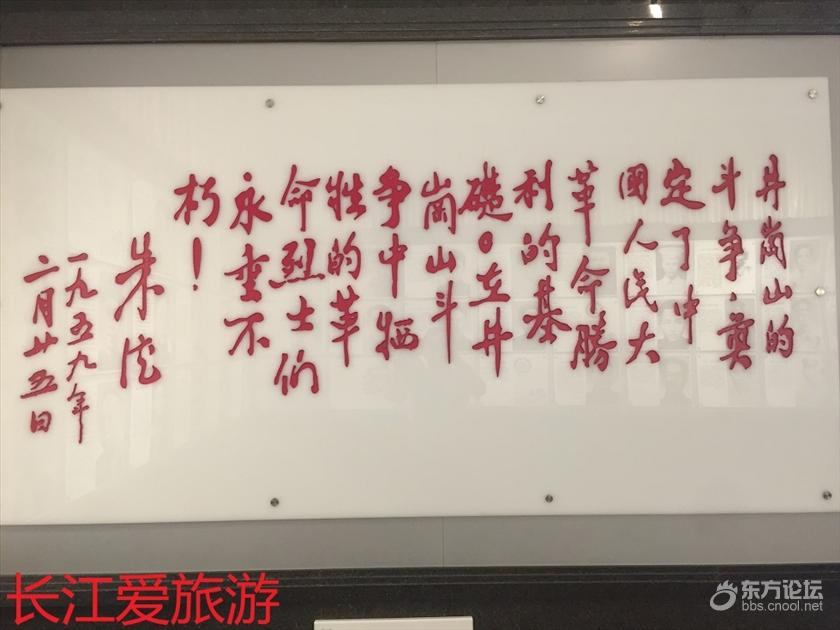 井崗山的
斗争，奠
定了中
國人民大
革命勝
利的基
礎。在井
崗山斗
争中牺
牲的革
命烈士们
永垂不
朽！
朱德
一九五九年
二月廿五日
长江爱旅游
东方论坛
bbs.cnool.net